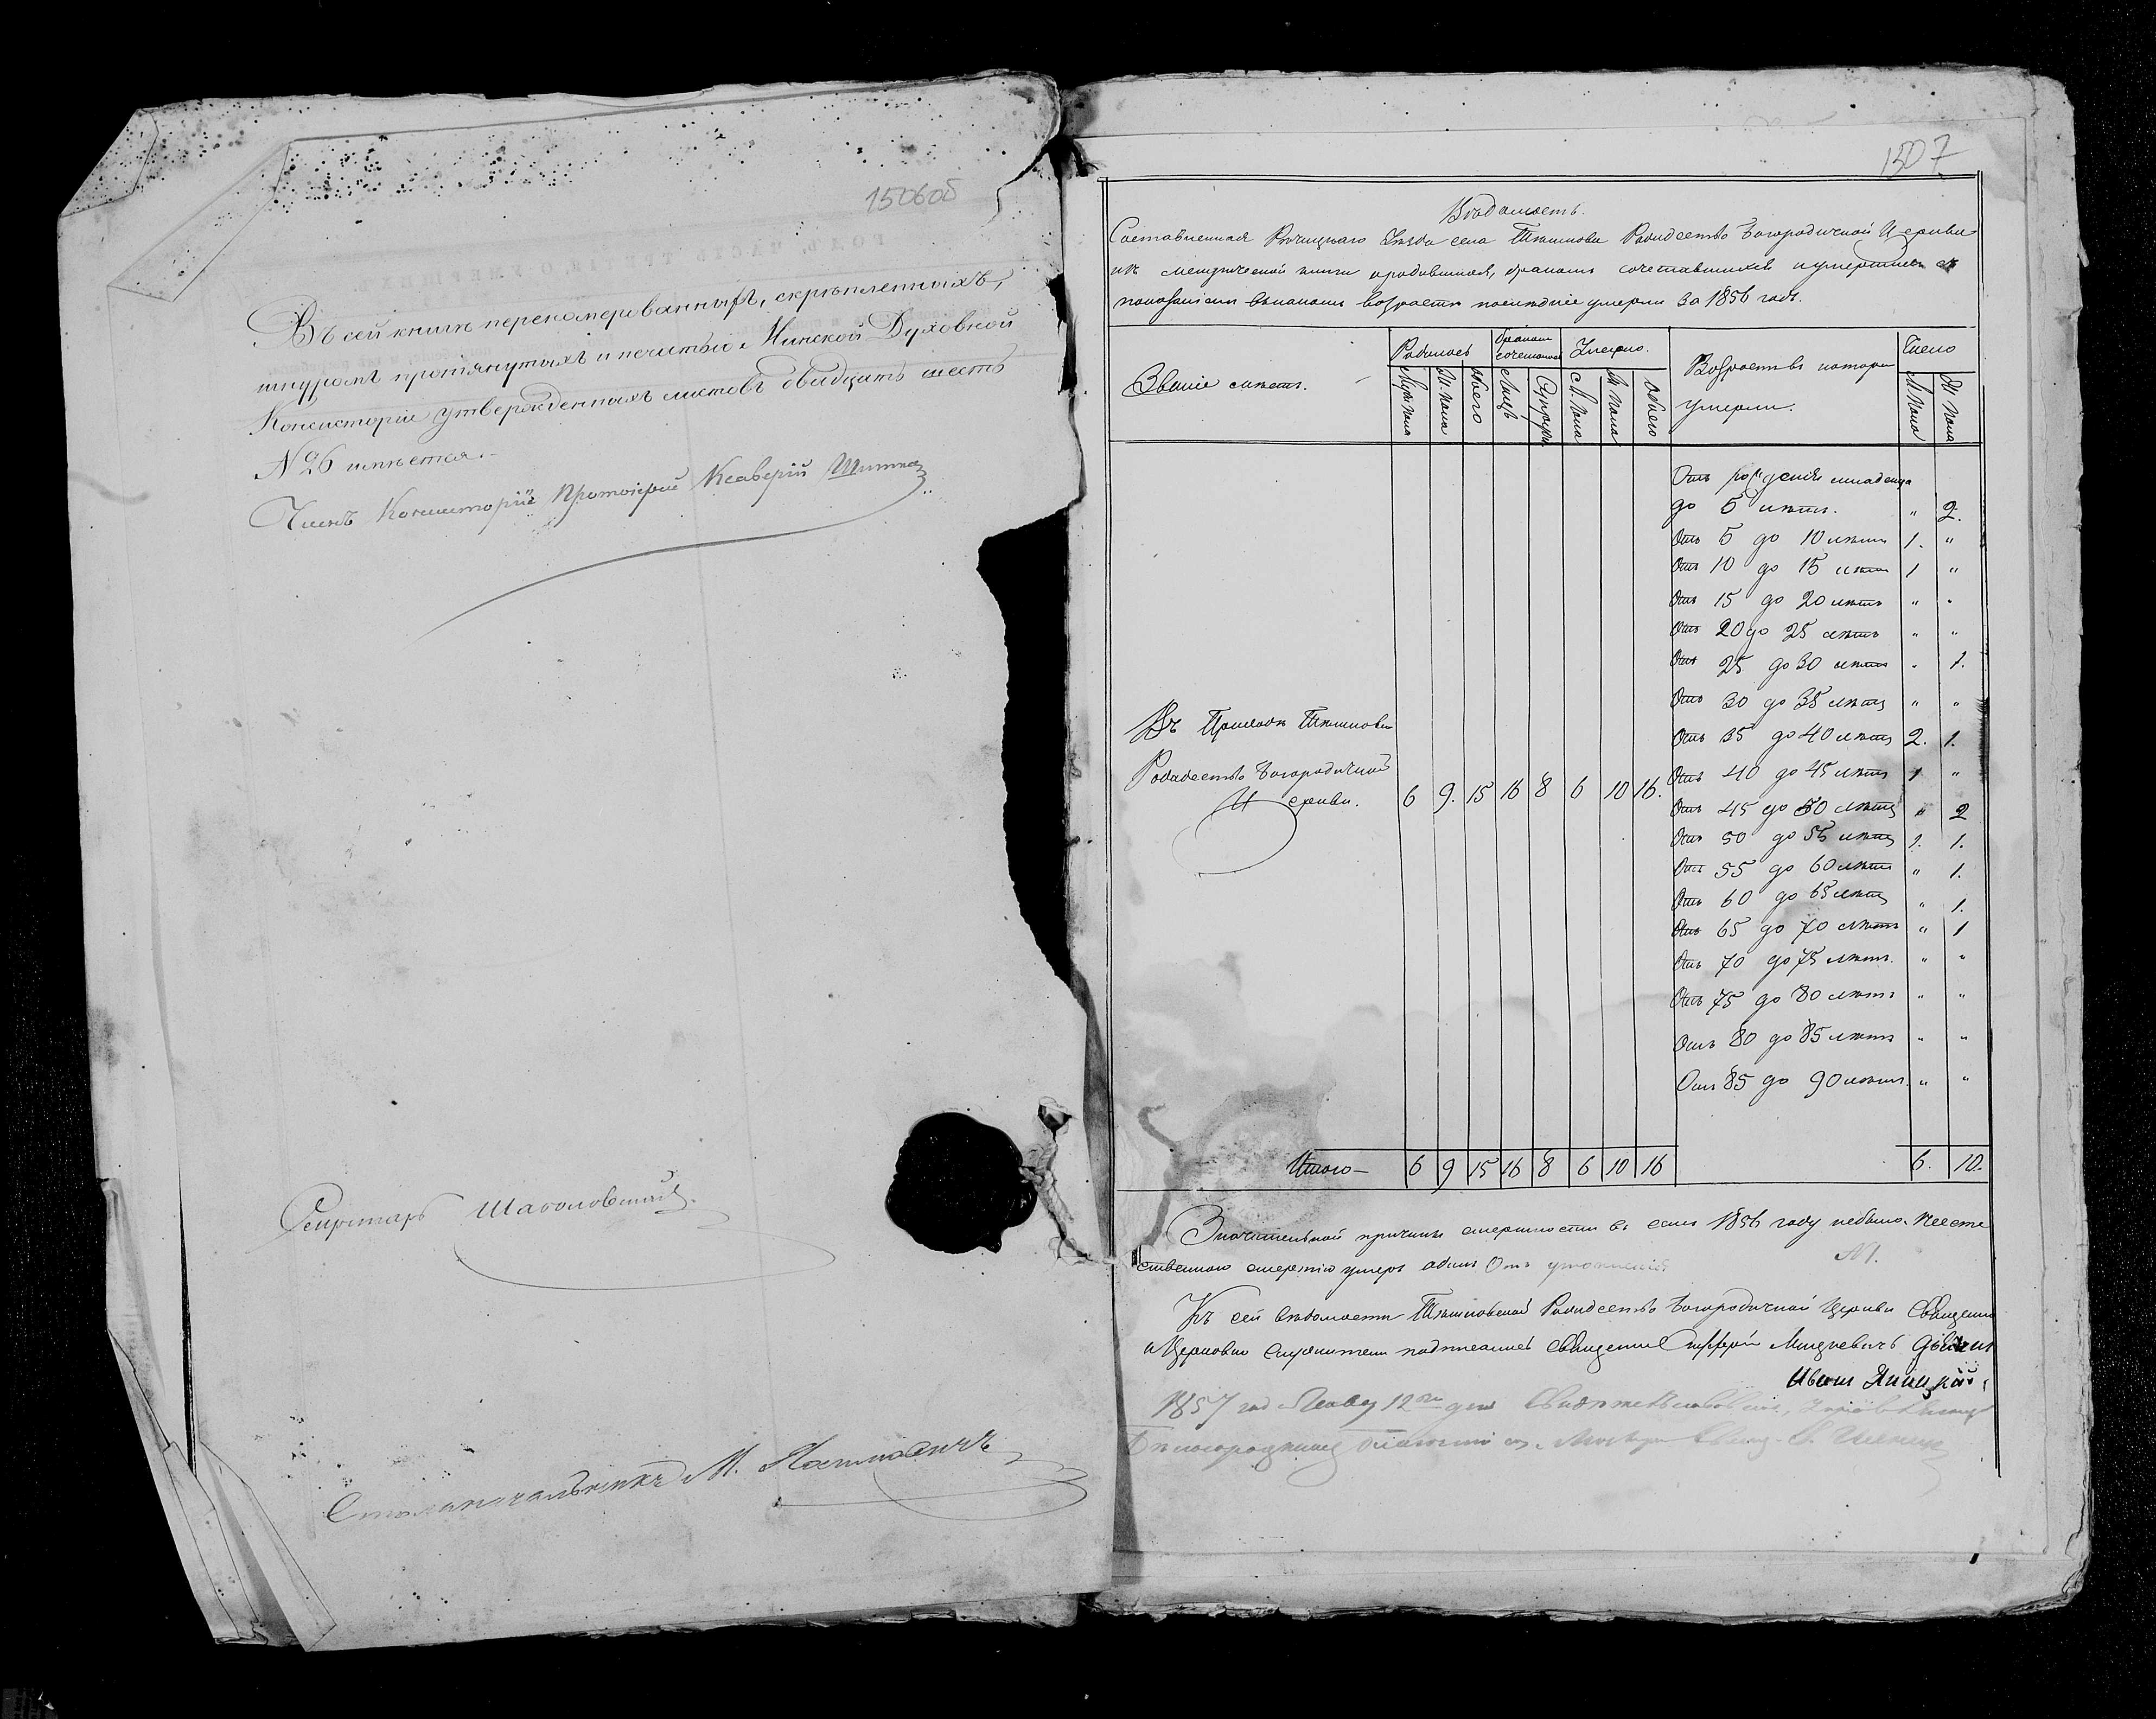 1506об
Въ сей книгѣ перенумерованныхъ, скрѣпленныхъ,
шнуромъ протянутыхъ и печатью Минской Духовной
Консисторіи утвержденныхъ листовъ двадцать шесть
№ 26 имѣется.
Членъ Консисторіи Протоіерей Ксаверій
Секретарь
Столоначальникъ М.
1507
Вѣдомость
Составленная Рѣчицкаго Уѣзда села Рождество Богородичной Церкви
изъ метрической книги о родившихся, бракомъ сочетавшихся и умершихъ съ
показаніем возраста умерли за 1856 годъ.
Званіе мѣстъ. Родилось бракомъ сочеталось Умерло. Возрастъ въ котором умерли. Число
Муж пола Ж. пола Обоего Лицъ Супруж М. пола Ж. пола Обоего М. пола Ж пола
Отъ рожденія младенца
до 5 лѣтъ. " 2.
Отъ 5 до 10 лѣтъ 1. "
Отъ 10 до 15 лѣтъ 1 "
Отъ 15 до 20 лѣтъ " "
Отъ 20 до 25 лѣтъ " "
Отъ 25 до 30 лѣтъ " 1.
Отъ 30 до 35 лѣтъ " "
Отъ 35 до 40 лѣтъ 2. 1.
Отъ 40 до 45 лѣтъ 1 "
Отъ 45 до 50 лѣтъ " 2
Отъ 50 до 55 лѣтъ 1. 1.
Отъ 55 до 60 лѣтъ " 1.
Отъ 60 до 65 лѣтъ " 1.
Отъ 65 до 70 лѣтъ " 1
Отъ 70 до 75 лѣтъ. " "
Отъ 75 до 80 лѣтъ " "
Отъ 80 до 85 лѣтъ " "
Отъ 85 до 90 лѣтъ. " "
Въ Приходѣ
Рождество Богородичной
Церкви. 6 9. 15 16 8 6 10 16.
Итого — 6 9 15 16 8 6 10 16 6. 10.
Значительной причины смертности въ семъ 1856 году небыло. Неесте
ственною смертію умеръ одинъ Отъ утопленія №1.
Къ сей вѣдомости Рождество Богородичной Церкви Священно
и Церковно служители подписались Священник
Иванъ
1857 год 12го дня